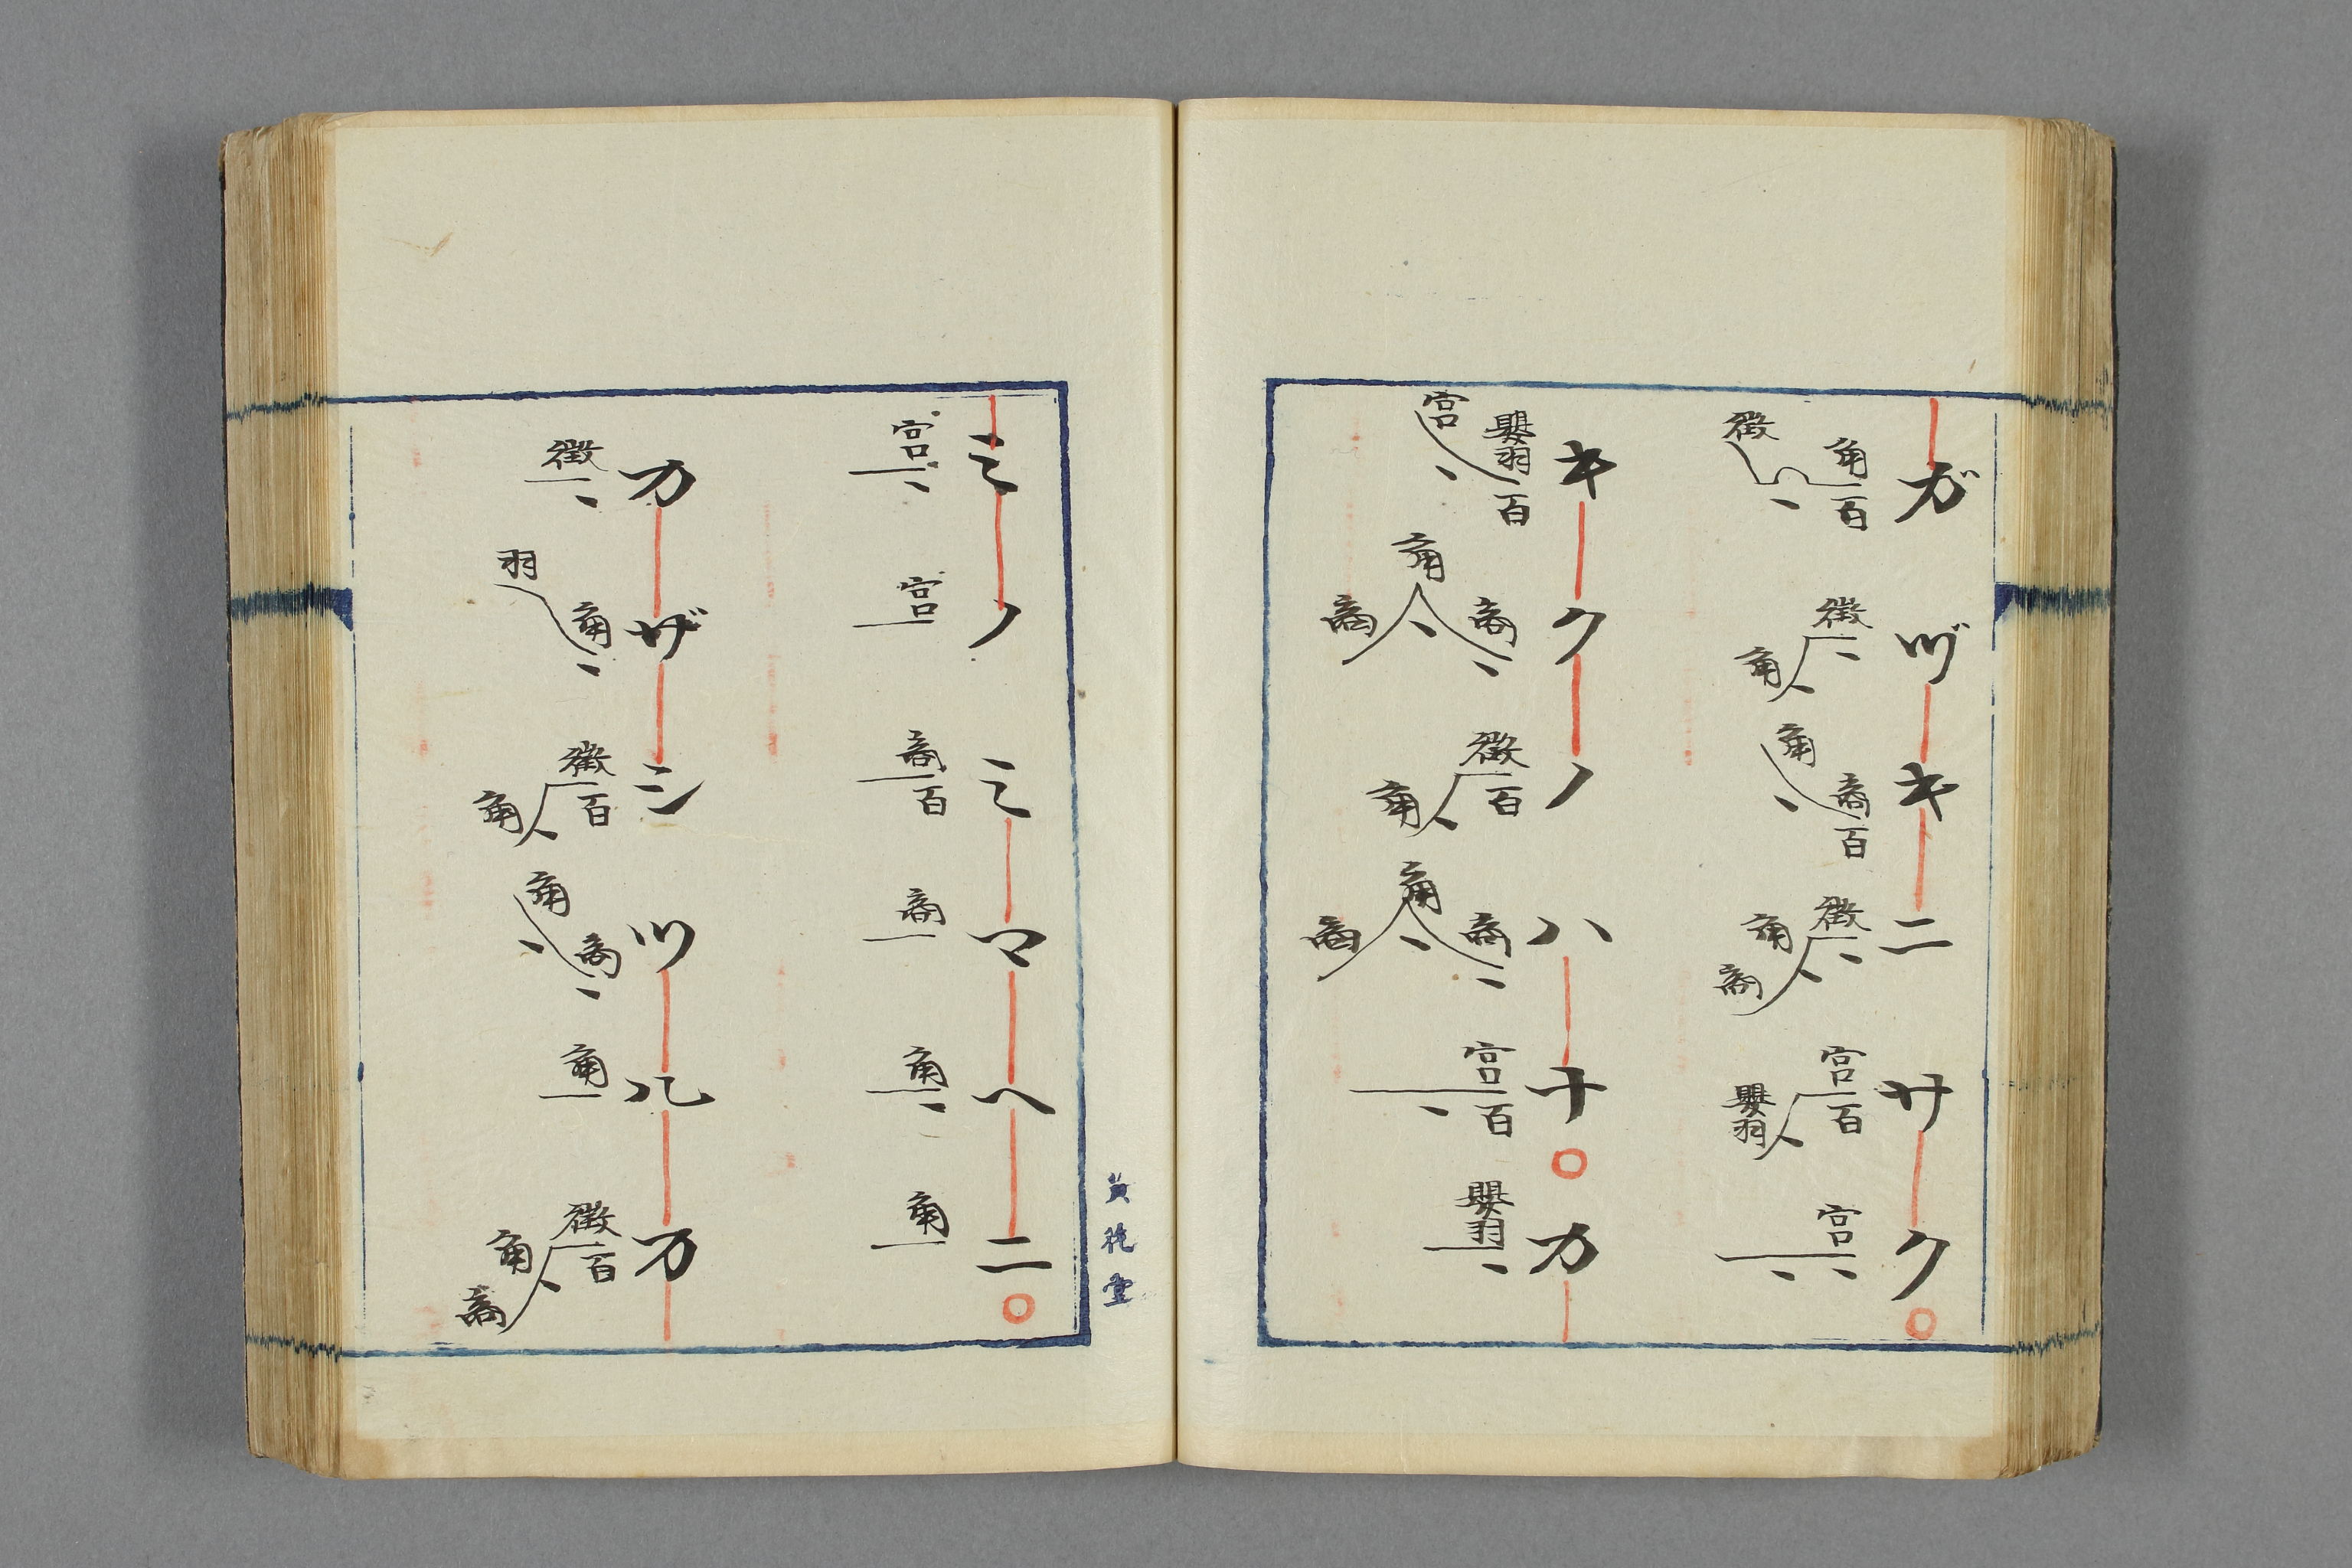 ガヅキニサク○
角百徴 徴角 角商百 徴角商 宮百嬰羽 宮
キクノハナ○カ
宮嬰羽百 商角商 徴百角 商角商 宮百 嬰羽
ミノミマヘニ○
宮 宮 商百 商 角 角
カザシツルカ
徴 羽角 徴百角 角商 角 徴百角商